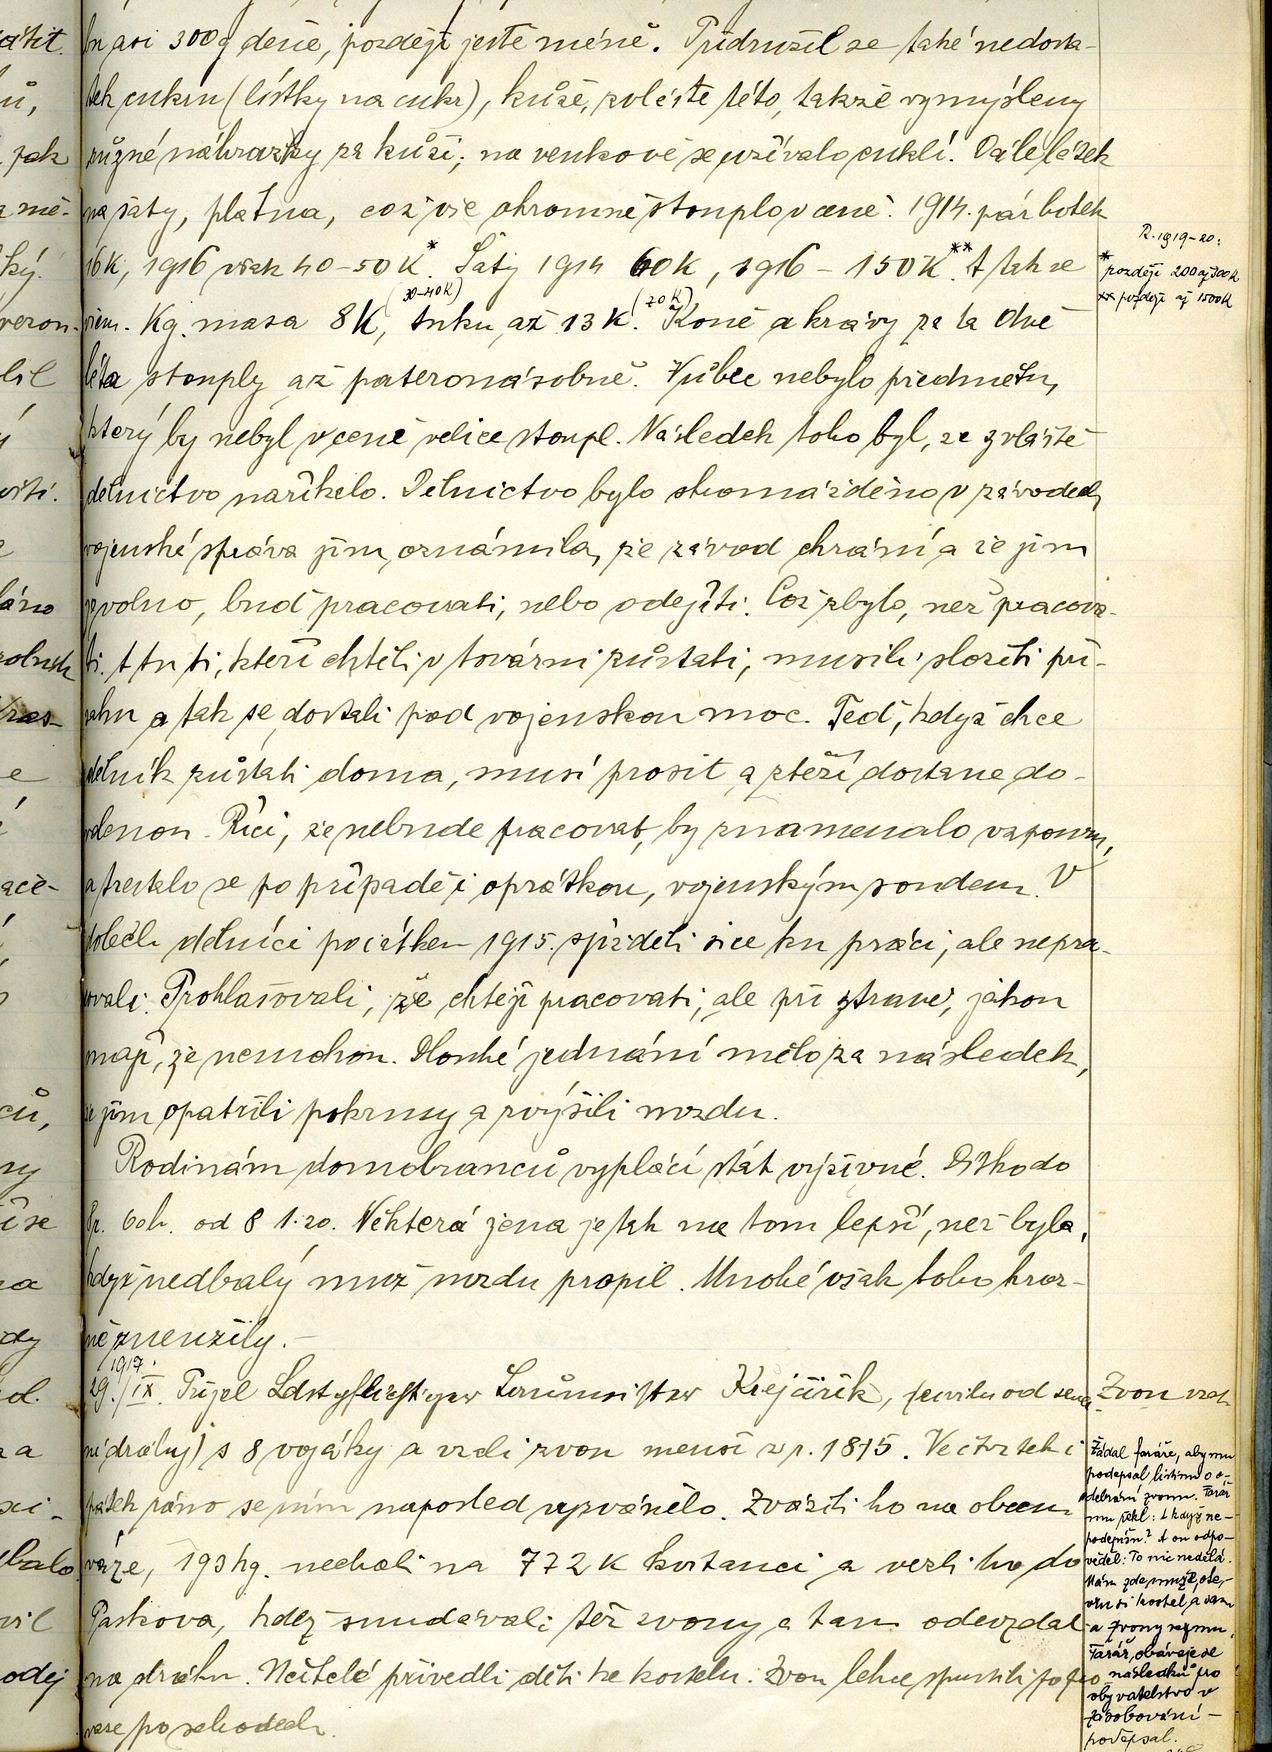 asi 300g deně, později ještě méně. Přidružil se také nedosta-
tek cukru (lístky na cukr), kůže, zvláště této, takže vymýšleny
různé náhrazky za kůži; na venkově se užívalo cuklí. Dále látek
na šaty, plátna, což vše ohromně stouplo v ceně. 1914. pár botek
16K, 1916 však 40-50K*. Šaty 1914 60K, 1916 - 150K**. A tak se
vším. Kg. masa 8K (30-40K), tuku až 13K. (70K) Koně a krávy za ta dvě
léta stouply až pateronásobně. Vůbec nebylo předmětu,
který by nebyl v ceně velice stoupl. Následek toho byl, že zvláště
dělnictvo naříkalo. Dělnictvo bylo shromážděno v závodech,
vojenská správa jim oznámila, že závod chrání a že jim
volno, buď pracovati, nebo odejíti. Což zbylo, než pracova-
ti. A tu ti, kteří chtěli v továrni zůstati, musili složiti pří-
sahu a tak se dostali pod vojenskou moc. Teď, když chce
dělník zůstati doma, musí prosit a stěží dostane do-
volenou. Říci, že nebude pracovat, by znamenalo vzpouru,
a trestalo se po případě i oprátkou, vojenským soudem. V
dělníci počátkem 1915. sjížděli sice ku práci, ale nepra-
covali. Prohlašovali, že chtějí pracovati, ale při stravě, jakou
mají, že nemohou. Dlouhé jednání mělo za následek,
že jim opatřili pokrmy a zvýšili mzdu.
Rodinám domobranců vyplácí stát výživné. Dítko do
8r. 60h. od 8 1.20. Některá žena je tak na tom lepší, než byla,
když nedbalý muž mzdu propil. Mnohé však toho hroz-
ně zneužily. -
1917.
29./IX. Přijel Krejčiřík, (civilu od
) s 8 vojáky a vzali zvon menší z r. 1815. Ve čtvrtek i
pátek ráno se ním naposled vyzvánělo. Zvážili ho na obecní
váze, 193 kg. nechali na 772 K kvitanci a vezli ho do
Paskova, kdež sundavali též zvony a tam odevzdal
na dráhu. Učitelé přivedli děti ke kostelu. Zvon lehce spustili po
vaze po schodech.
R. 1919-20:
* později 200 až 300K
** později až 1500K
Zvon vzat
Žádal faráře, aby mu
podepsal listinu o o-
debrání zvonu. Farář
mu řekl: A když ne-
podepíši? A on odpo-
věděl: To nic nedělá.
Mám zde muže, ote-
vru si kostel a sám
a zvony sejmu.
Farář, obávaje se
následků pro
obyvatelstvo v
zásobování -
podepsal.